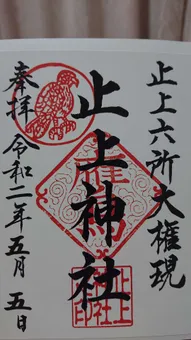 止上六所大権現
止上神社
奉拝 令和二年五月五日
止上
神社
印